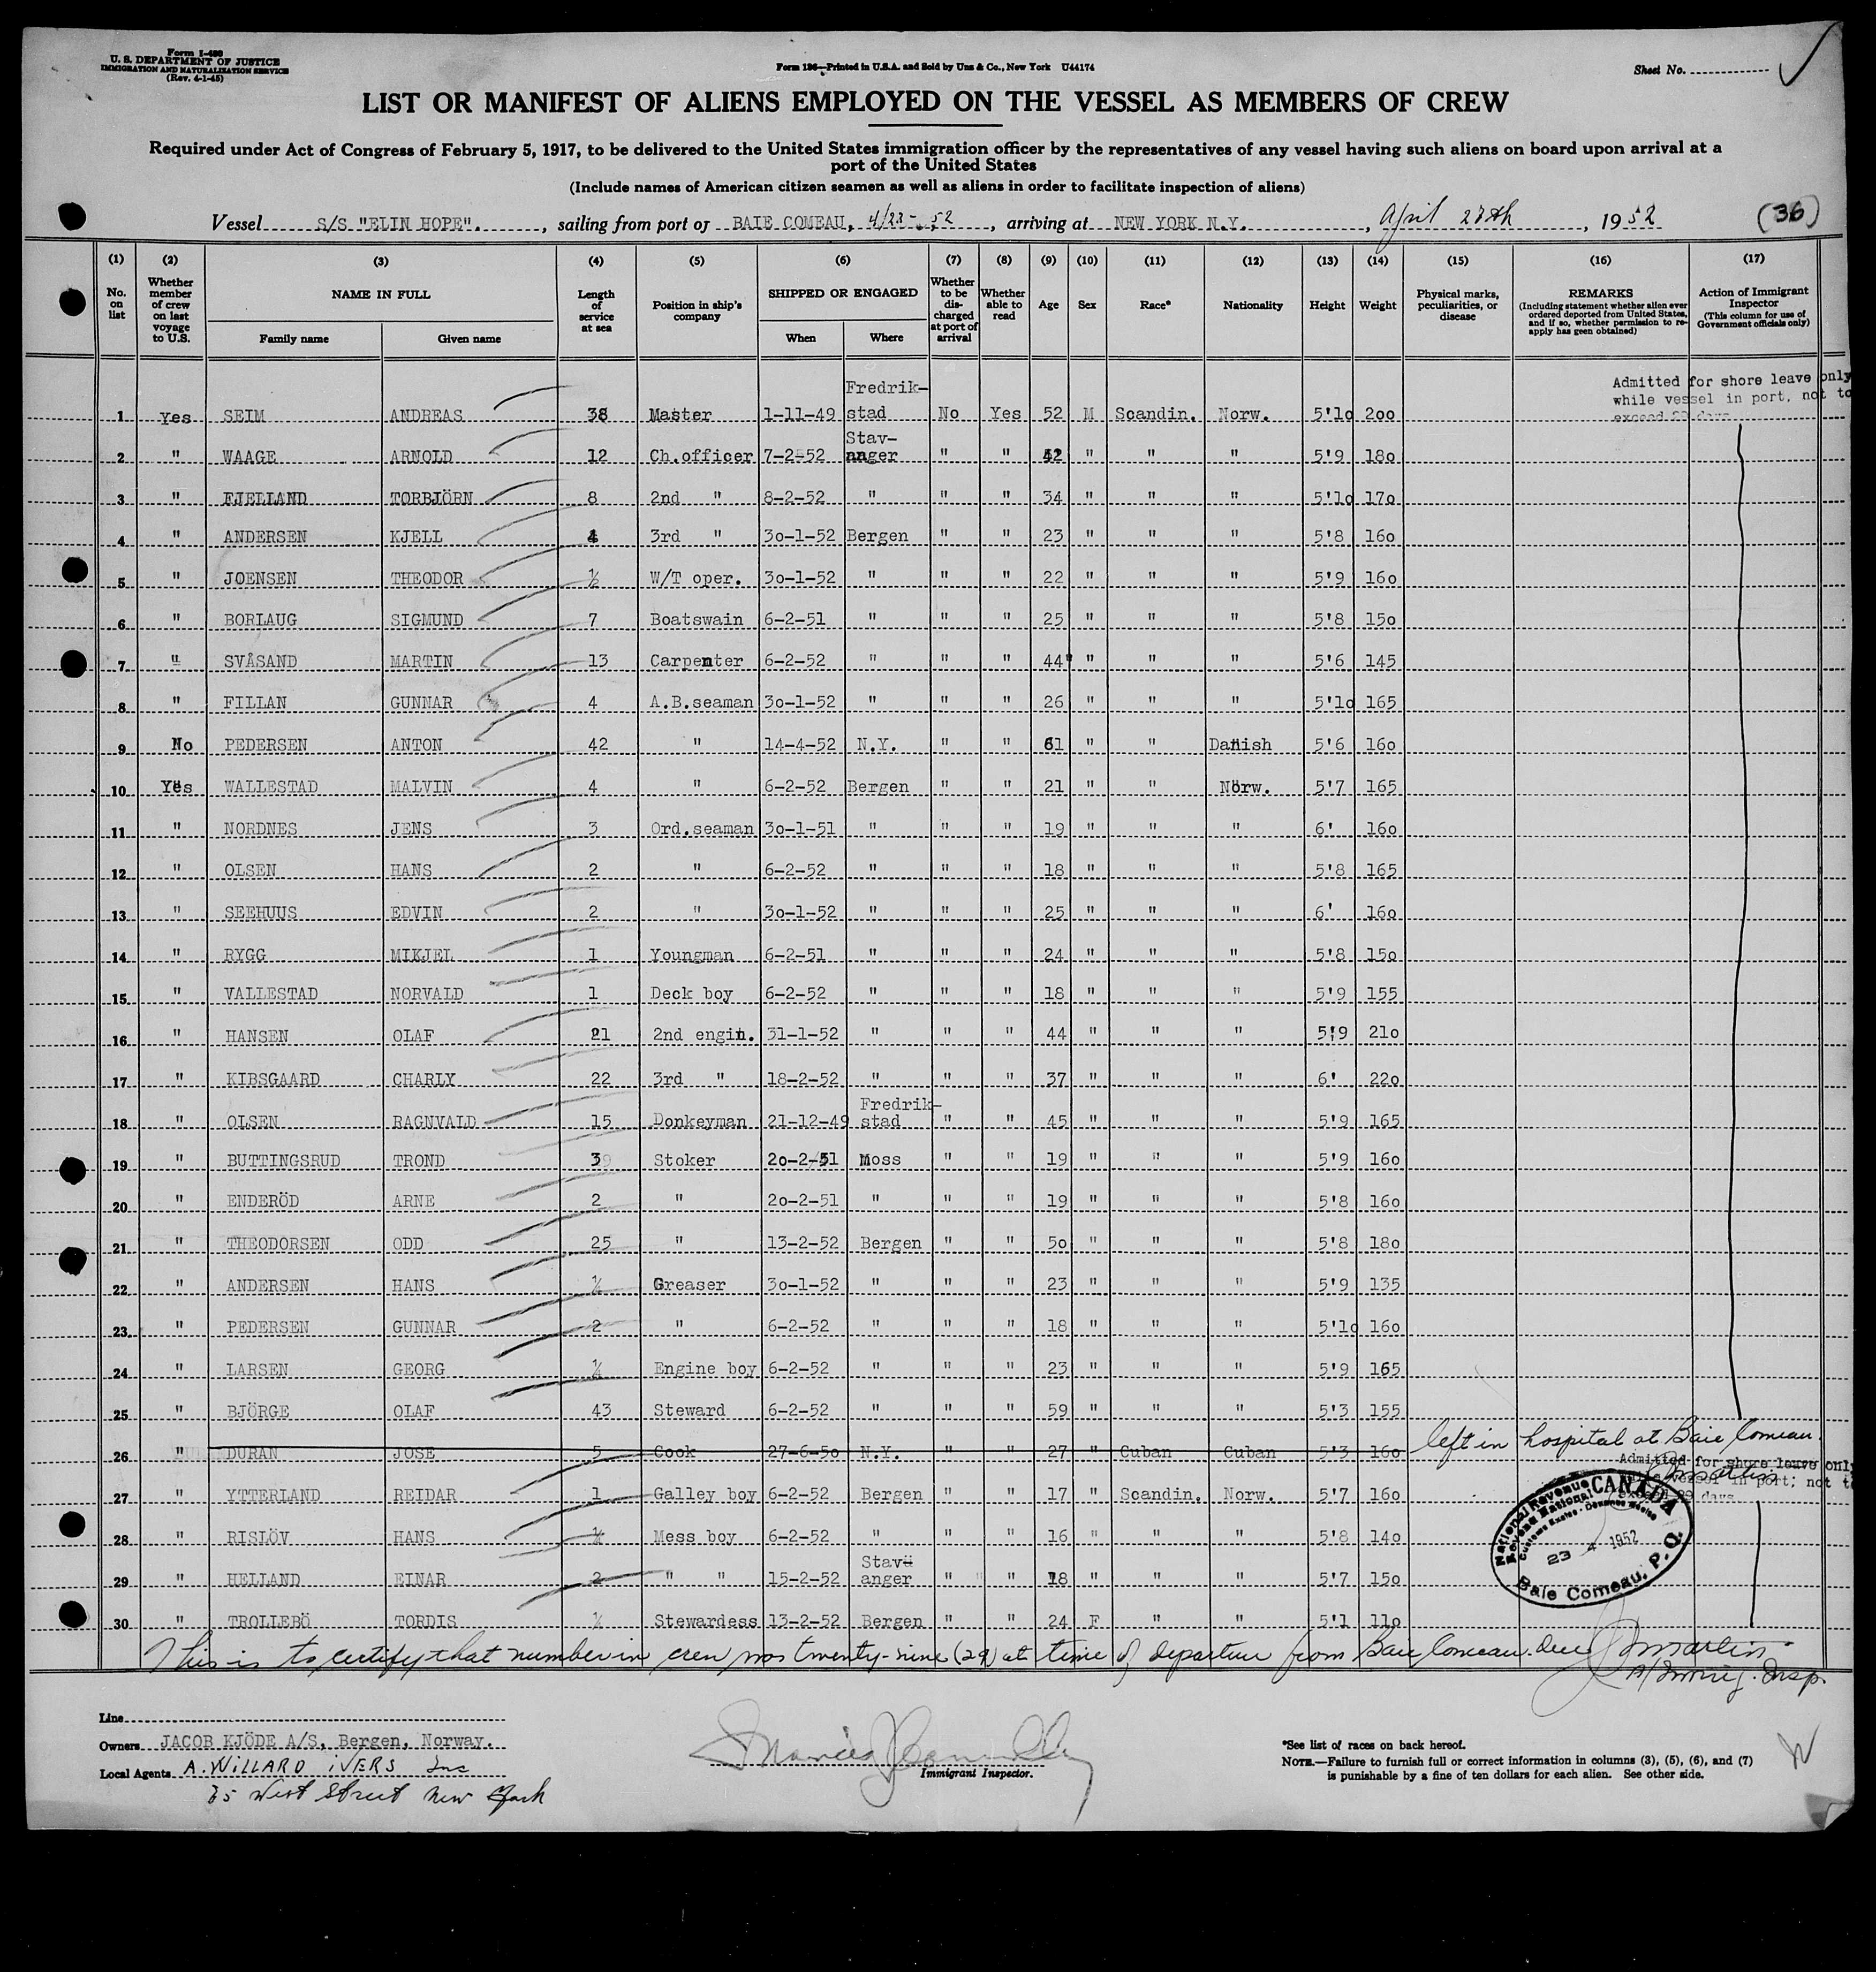 Form I-480
U. S. DEPARTMENT OF JUSTICE
IMMIGRATION AND NATURALIZATION SERVICE
(Rev. 4-1-45)
Form 126—Printed in U.S.A. and Sold by Unz & Co., New York U44174
Sheet No.
LIST OR MANIFEST OF ALIENS EMPLOYED ON THE VESSEL AS MEMBERS OF CREW
Required under Act of Congress of February 5, 1917, to be delivered to the United States immigration officer by the representatives of any vessel having such aliens on board upon arrival at a
port of the United States
(Include names of American citizen seamen as well as aliens in order to facilitate inspection of aliens)
Vessel S/S "ELIN HOPE". , sailing from port of BAIE COMEAU, 4/23-52 , arriving at NEW YORK N.Y. , April 28th , 1952 (36)
(1) (2) (3) (4) (5) (6) (7) (8) (9) (10) (11) (12) (13) (14) (15) (16) (17)
No. on list
Whether member of crew on last voyage to U.S.
NAME IN FULL
Family name
Given name
Length of service at sea
Position in ship's company
SHIPPED OR ENGAGED
When
Where
Whether to be discharged at port of arrival
Whether able to read
Age
Sex
Race*
Nationality
Height
Weight
Physical marks, peculiarities, or disease
REMARKS
(Including statement whether alien ever ordered deported from United States, and if so, whether permission to re-apply has geen obtained)
Action of Immigrant Inspector
(This column for use of Government officials only)
Admitted for shore leave only
while vessel in port, not to
exceed 29 days
1 Yes SEIM ANDREAS 38 Master 1-11-49 Fredrik-stad No Yes 52 M Scandin. Norw. 5'10 200
2 " WAAGE ARNOLD 12 Ch.officer 7-2-52 Stav-anger " " 42 " " " 5'9 180
3 " FJELLAND TORBJÖRN 8 2nd " 8-2-52 " " " 34 " " " 5'10 170
4 " ANDERSEN KJELL 4 3rd " 30-1-52 Bergen " " 23 " " " 5'8 160
5 " JOENSEN THEODOR ½ W/T oper. 30-1-52 " " " 22 " " " 5'9 160
6 " BORLAUG SIGMUND 7 Boatswain 6-2-51 " " " 25 " " " 5'8 150
7 " SVÅSAND MARTIN 13 Carpenter 6-2-52 " " " 44 " " " 5'6 145
8 " FILLAN GUNNAR 4 A.B.seaman 30-1-52 " " " 26 " " " 5'10 165
9 No PEDERSEN ANTON 42 " 14-4-52 N.Y. " " 61 " " Danish 5'6 160
10 Yes WALLESTAD MALVIN 4 " 6-2-52 Bergen " " 21 " " Norw. 5'7 165
11 " NORDNES JENS 3 Ord.seaman 30-1-51 " " " 19 " " " 6' 160
12 " OLSEN HANS 2 " 6-2-52 " " " 18 " " " 5'8 165
13 " SEEHUUS EDVIN 2 " 30-1-52 " " " 25 " " " 6' 160
14 " RYGG MIKJEL 1 Youngman 6-2-51 " " " 24 " " " 5'8 150
15 " VALLESTAD NORVALD 1 Deck boy 6-2-52 " " " 18 " " " 5'9 155
16 " HANSEN OLAF 21 2nd engin. 31-1-52 " " " 44 " " " 5'9 210
17 " KIBSGAARD CHARLY 22 3rd " 18-2-52 " " " 37 " " " 6' 220
18 " OLSEN RAGNVALD 15 Donkeyman 21-12-49 Fredrik-stad " " 45 " " " 5'9 165
19 " BUTTINGSRUD TROND 3 Stoker 20-2-51 Moss " " 19 " " " 5'9 160
20 " ENDERÖD ARNE 2 " 20-2-51 " " " 19 " " " 5'8 160
21 " THEODORSEN ODD 25 " 13-2-52 Bergen " " 50 " " " 5'8 180
22 " ANDERSEN HANS Greaser 30-1-52 " " " 23 " " " 5'9 135
23 " PEDERSEN GUNNAR 2 " 6-2-52 " " " 18 " " " 5'10 160
24 " LARSEN GEORG Engine boy 6-2-52 " " " 23 " " " 5'9 165
25 " BJÖRGE OLAF 43 Steward 6-2-52 " " " 59 " " " 5'3 155
26 " DURAN JOSE 5 Cook 27-6-50 N.Y. " " 27 " Cuban Cuban 5'3 160 left in hospital at Baie Comeau.
Admitted for shore leave only
while vessel in port; not to
exceed 29 days
27 " YTTERLAND REIDAR 1 Galley boy 6-2-52 Bergen " " 17 " Scandin. Norw. 5'7 160
28 " RISLÖV HANS Mess boy 6-2-52 " " " 16 " " " 5'8 140
29 " HELLAND EINAR 2 " " 15-2-52 Stav-anger " " 18 " " " 5'7 150
30 " TROLLEBÖ TORDIS Stewardess 13-2-52 Bergen " " 24 F " " 5'1 110
National Revenue CANADA
Revenu National
Customs Excise - Douanes Accise
23 4 1952
Baie Comeau, P. Q.
This is to certify that number in crew was twenty-nine (29) at time of departure from Baie Comeau. Que
Martin
A/Immig. Insp.
Line
Owners JACOB KJÖDE A/S, Bergen, Norway.
Local Agents A. WILLARD IVERS Inc
25 West Street New York
Immigrant Inspector.
*See list of races on back hereof.
NOTE.—Failure to furnish full or correct information in columns (3), (5), (6), and (7)
is punishable by a fine of ten dollars for each alien. See other side.